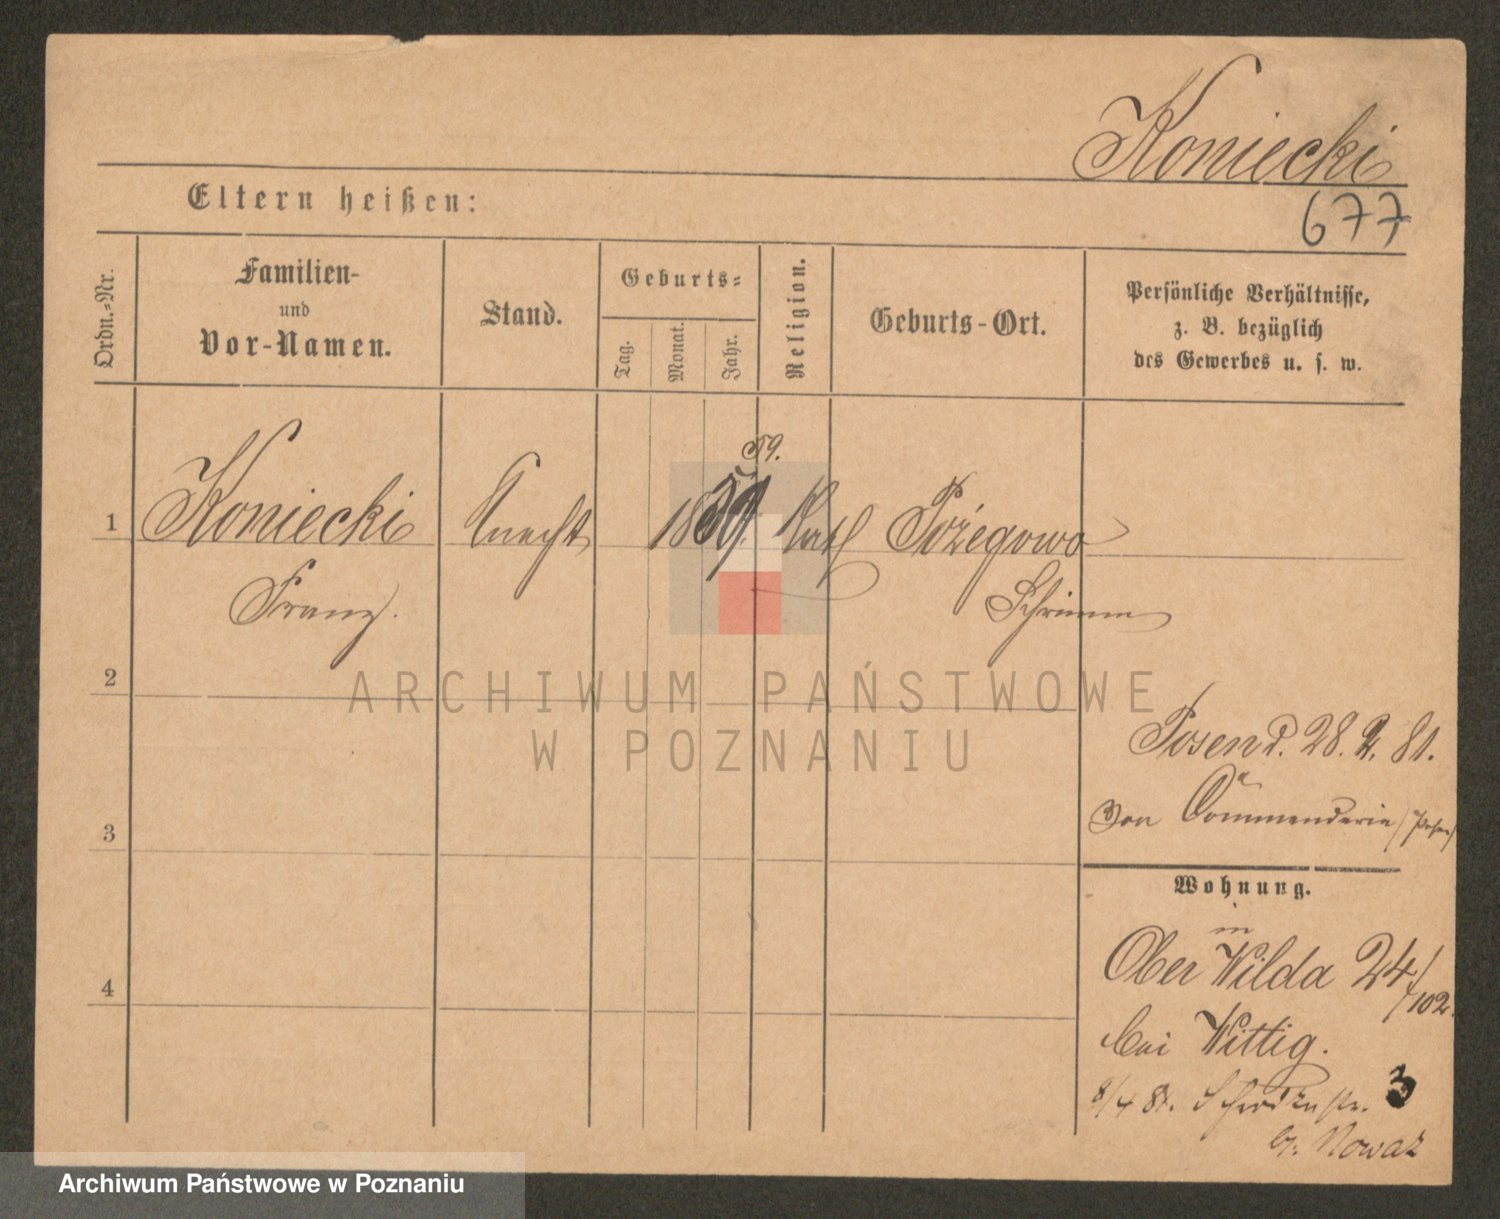 Koniecki
677
Eltern heißen:
Ordn.=Nr.
Familien-
und
Vor-Namen.
Stand.
Geburts=
Tag.
Monat.
Jahr.
Religion.
Geburts-Ort.
Persönliche Verhältnisse,
z. B. bezüglich
des Gewerbes u. s. w.
59.
1 Koniecki Knecht 1859. Kath Pożegowo
Franz. Schrimm
2
ARCHIWUM PAŃSTWOWE
W POZNANIU
Posen d. 28. 2. 81.
Von Commenderie (Posen)
3
Wohnung.
in
Ober Wilda 24/102.
4
bei Wittig.
8/4 81. 3
b. Nowak
Archiwum Państwowe w Poznaniu